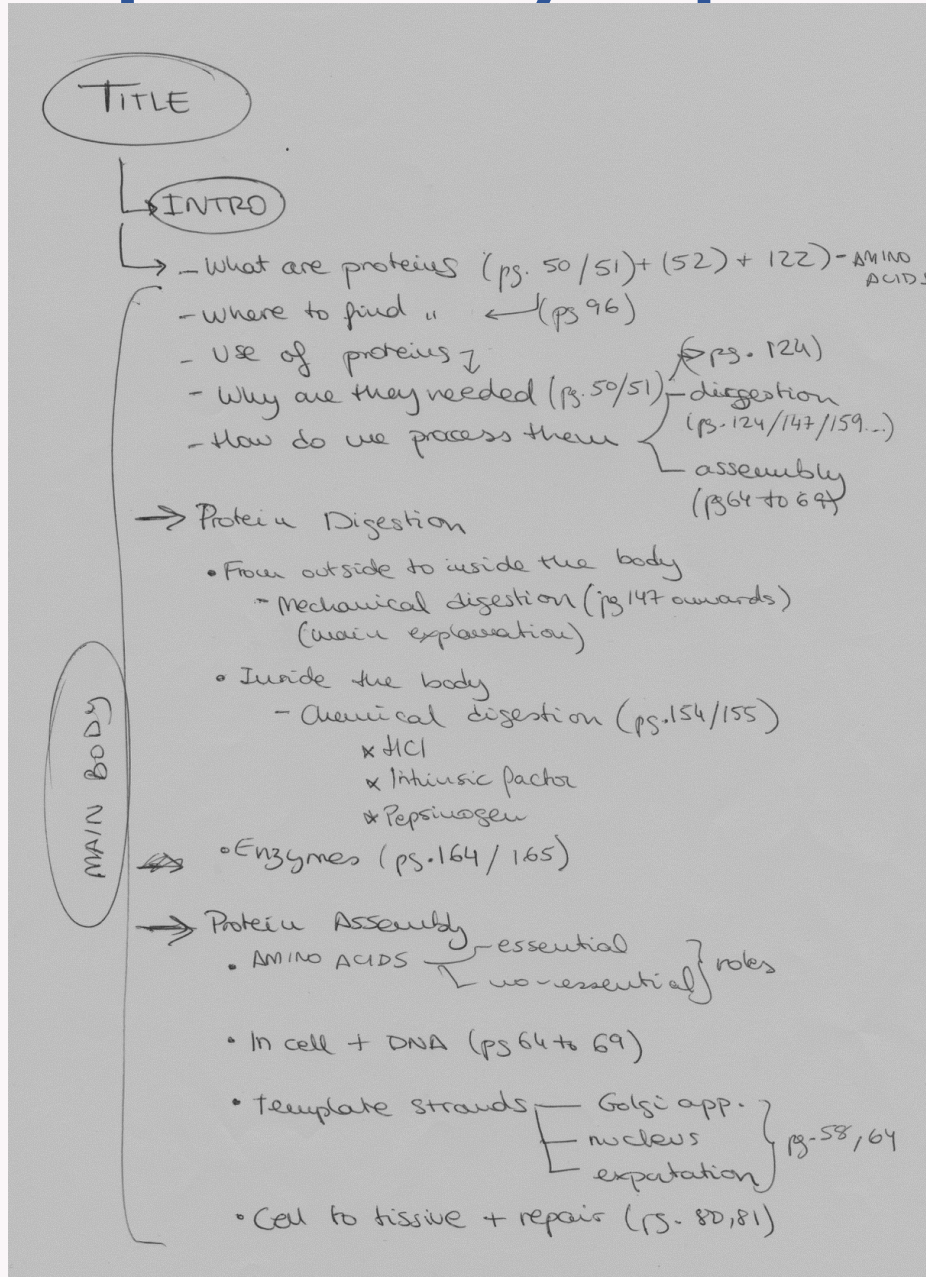 TITLE
INTRO
- What are proteins (pg. 50/51) + (52) + 122) - AMINO ACIDS
- Where to find " (pg 96)
- Use of proteins
- Why are they needed (pg. 50/51)
pg. 124)
- How do we process them
- digestion
(pg. 124/147/159...)
assembly
(pg 64 to 69)
→ Protein Digestion
• From outside to inside the body
- Mechanical digestion (pg 147 onwards)
(main explanation)
• Inside the body
- Chemical digestion (pg. 154/155)
* HCl
* Intrinsic factor
* Pepsinogen
• Enzymes (pg. 164/165)
MAIN BODY
→ Protein Assembly
• AMINO ACIDS
essential
no-essential
roles
• In cell + DNA (pg 64 to 69)
• Template strands
Golgi app.
nucleus
expatation
pg. 58, 64
• Cell to tissive + repair (pg. 80, 81)